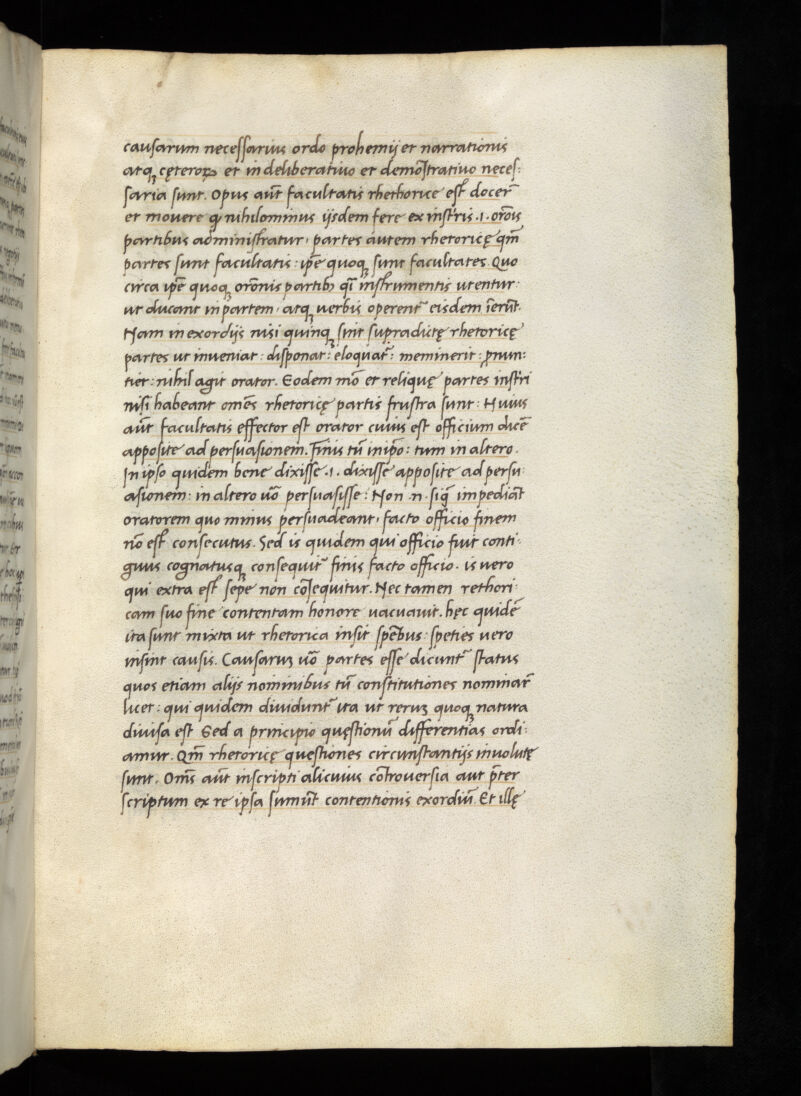 causarum necessarius ordo prohemij et narrationis
atq̧ cęteroꝝ et in deliberatiuo et demõstratiuo neces:
saria sunt. Opus aũt facultatis rhethorice est docer̃
et mouere ꝙ nihilominus ijsdem fere ex instris .i. orõis
partibus administratur, partes autem rhetoricę qm̃
partes sunt facultatis: ip̃e quoq̧ sunt facultates. Quo
circa ip̃e quoq̧ orõnis partibȝ q̃i instrumentis utentur:
ut ducant in partem, atq̧ uerbis operent̃ eisdem ĩerũt.
Nam in exordijs nisi quinq̧ sint supradictę rhetoricę
partes ut inueniat: disponat: eloquat̃: meminerit: ꝓnun:
tiet: nihil agit orator. Eodem mõ et reliquę partes instri
nisi habeant om̃es rhetoricę partis frustra sunt: Huius
aũt facultatis effector est orator cuius est officium dicẽ
apposite ad persuasionem. Finis tũ in ip̃o: tum in altero.
In ipso quidem bene dixisse .i. dixisse apposite ad persu:
asionem: in altero ũo persuasisse: Non .n. siq̃ impediãt
oratorem quo minus persuadeant, facto officio finem
nõ est consecutus. Sed is quidem qui officio fuit conti:
guus cognatusq̧ consequit̃ finis facto officio. is uero
qui extra est sepe non cõsequitur. Nec tamen rethori:
cam suo fine contentam honore uacuauit. hęc quidẽ
ita sunt mixta ut rhetorica insit spẽbus: speties uero
insint causis. Causarȝ ũo partes esse dicunt̃ status
quos etiam alijs nominibus tũ constitutiones nominar̃
licet: qui quidem diuidunt̃ ita ut rerȝ quoq̧ natura
diuisa est Sed a principio quęstionũ differentias ordi:
amur. Qm̃ rhetoricę quęstiones circunstantijs inuolutę
sunt. Om̃s aũt inscripti alicuius cõtrouersia aut p̃ter
scriptum ex re ipsa sumũt contentionis exordiũ. Et illę